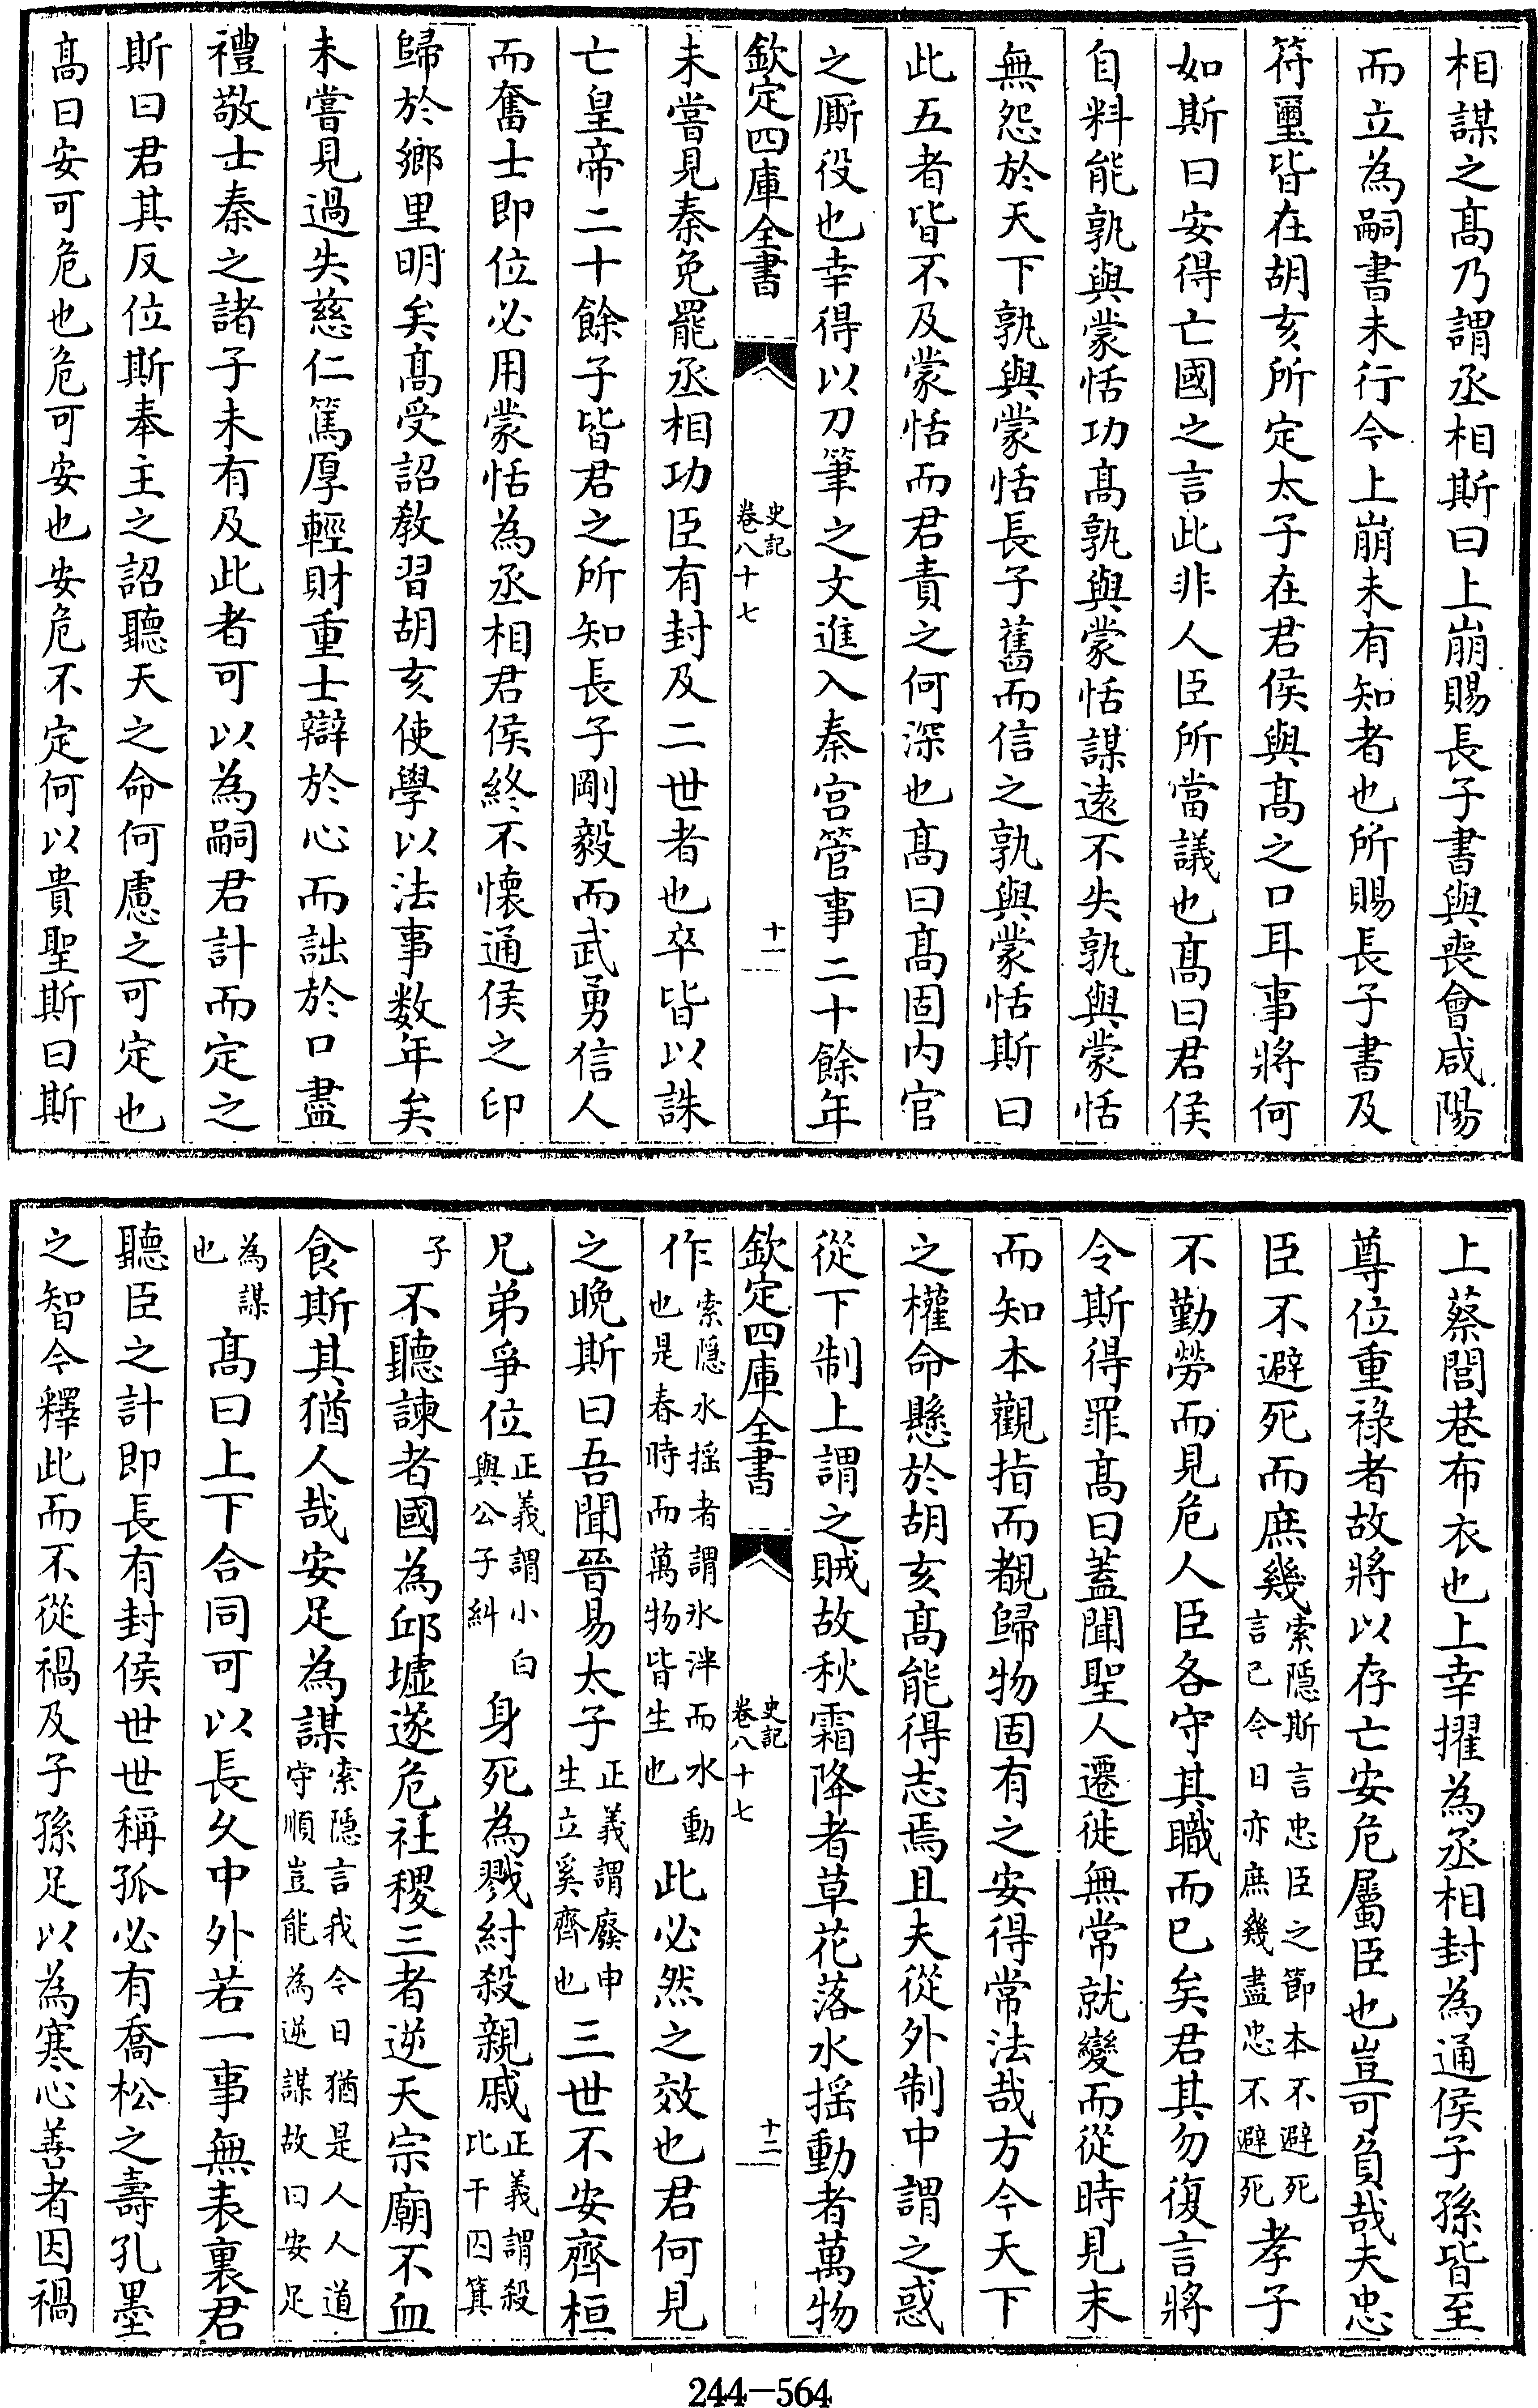 相謀之髙乃謂丞相斯曰上崩賜長子書與喪會咸陽
而立為嗣書未行今上崩未有知者也所賜長子書及
符璽皆在胡亥所定太子在君侯與髙之口耳事將何
如斯曰安得亡國之言此非人臣所當議也髙曰君侯
自料能孰與蒙恬功髙孰與蒙恬謀遠不失孰與蒙恬
無怨於天下孰與蒙恬長子舊而信之孰與蒙恬斯曰
此五者皆不及蒙恬而君責之何深也髙曰髙固内官
之厮役也幸得以刀筆之文進入秦宫管事二十餘年
欽定四庫全書
史記
卷八十七
十一
未嘗見秦免罷丞相功臣有封及二世者也卒皆以誅
亡皇帝二十餘子皆君之所知長子剛毅而武勇信人
而奮士即位必用蒙恬為丞相君侯終不懐通侯之印
歸於鄉里明矣髙受詔敎習胡亥使學以法事数年矣
未嘗見過失慈仁篤厚輕財重士辯於心而詘於口盡
禮敬士秦之諸子未有及此者可以為嗣君計而定之
斯曰君其反位斯奉主之詔聽天之命何慮之可定也
髙曰安可危也危可安也安危不定何以貴聖斯曰斯
上蔡閭巷布衣也上幸擢為丞相封為通侯子孫皆至
尊位重禄者故將以存亡安危屬臣也豈可負哉夫忠
臣不避死而庶幾
索隠斯言忠臣之節本不避死
言己今日亦庶幾盡忠不避死
孝子
不勤勞而見危人臣各守其職而已矣君其勿復言將
令斯得罪髙曰蓋聞聖人遷徙無常就變而從時見末
而知本觀指而覩歸物固有之安得常法哉方今天下
之權命懸於胡亥髙能得志焉且夫從外制中謂之惑
從下制上謂之賊故秋霜降者草花落水揺動者萬物
欽定四庫全書
史記
卷八十七
十二
作
索隠水揺者謂氷泮而水動
也是春時而萬物皆生也
此必然之效也君何見
之晩斯曰吾聞晉易太子
正義謂廢申
生立奚齊也
三世不安齊桓
兄弟爭位
正義謂小白
與公子糾
身死為戮紂殺親戚
正義謂殺
比干囚箕
子
不聽諫者國為邱墟遂危社稷三者逆天宗廟不血
食斯其猶人哉安足為謀
索隠言我今日猶是人人道
守順豈能為逆謀故曰安足
為謀
也
髙曰上下合同可以長久中外若一事無表裏君
聽臣之計即長有封侯世世稱孤必有喬松之壽孔墨
之智今釋此而不從禍及子孫足以為寒心善者因禍
244-564